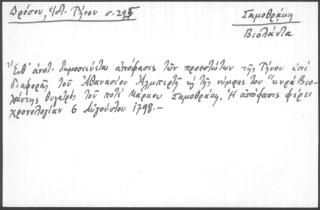 Δρόσου, Ἱστ. Τήνου σ. 295
Σαμοθράκη
Βιολάντα
Ἔνθ' ἀνωτ. δημοσιεύεται ἀπόφασις τῶν προεστώτων τῆς Τήνου ἐπὶ
διαφορᾶς τοῦ Ἀθανασίου Ἀλμπέρτη καὶ τῆς νύμφης του "κυρὰ Βιο-
λάντης θυγατρὸς τοῦ ποτὲ Μάρκου Σαμοθράκη. Ἡ ἀπόφασις φέρει
χρονολογίαν 6 Αὐγούστου 1798.—